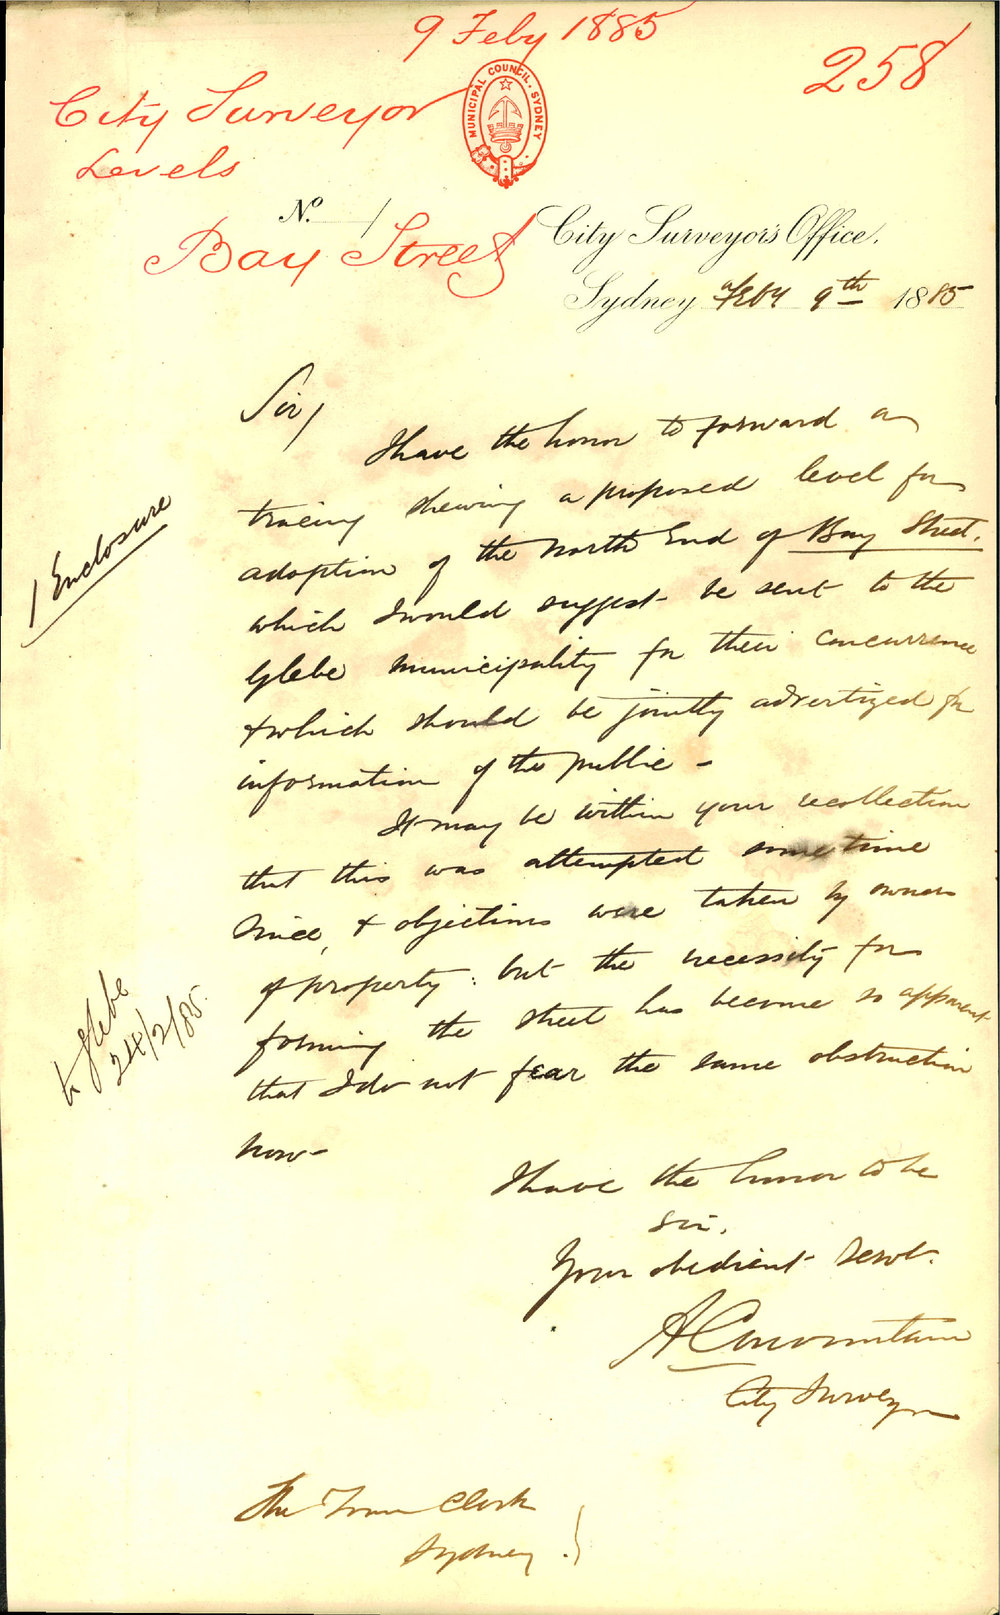 9 Feby 1885
258
City Surveyor
Levels
MUNICIPAL COUNCIL. SYDNEY
No. 1
Bay Street
City Surveyor's Office.
Sydney Feby 9th 1885
Sir,
I have the honor to forward a
tracing shewing a proposed level for
adoption of the North End of Bay Street.
which I would suggest be sent to the
Glebe Municipality for their concurrence
& which should be jointly advertized for
information of the public -
It may be within your recollection
that this was attempted some time
since, & objections were taken by owners
of property: but the necessity for
forming the street has become so apparent
that I do not fear the same obstruction
now -
I have the honor to be
Sir,
Your obedient Servt.
City Surveyor
The Town Clerk
Sydney.
1 Enclosure
Glebe
24/2/85.